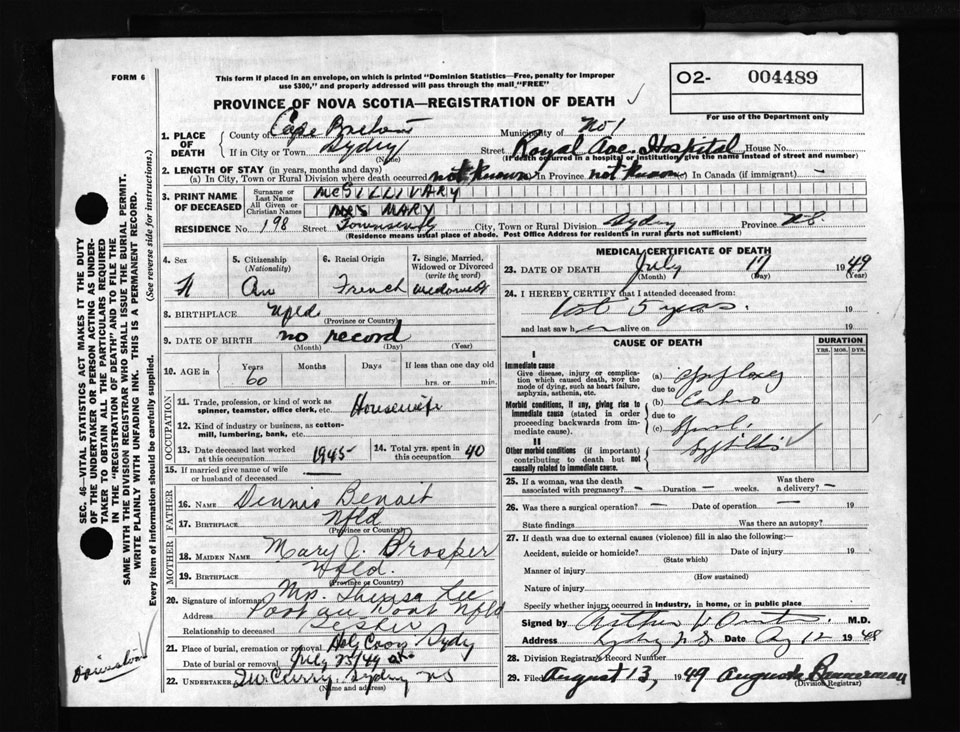 FORM 6
This form if placed in an envelope, on which is printed "Dominion Statistics—Free, penalty for improper
use $300," and properly addressed will pass through the mail "FREE"
O2- 004489
For use of the Department only
PROVINCE OF NOVA SCOTIA—REGISTRATION OF DEATH
1. PLACE OF DEATH
County of Cape Breton Municipality of No 1
If in City or Town Sydney (Name) Street Royal Ave. Hospital House No.
(If death occurred in a hospital or institution give the name instead of street and number)
2. LENGTH OF STAY (in years, months and days)
(a) In City, Town or Rural Division where death occurred not known In Province not known In Canada (if immigrant) -
3. PRINT NAME OF DECEASED
Surname or Last Name McGILLIVARY
All Given or Christian Names MRS MARY
RESIDENCE No. 198 Street Townsend City, Town or Rural Division Sydney Province N.S.
(Residence means usual place of abode. Post Office Address for residents in rural parts not sufficient)
4. Sex
5. Citizenship (Nationality)
6. Racial Origin French
7. Single, Married, Widowed or Divorced (write the word)
8. BIRTHPLACE Nfld
(Province or Country)
9. DATE OF BIRTH no record
(Month) (Day) (Year)
10. AGE in Years 60 Months Days If less than one day old hrs. or min.
OCCUPATION
11. Trade, profession, or kind of work as spinner, teamster, office clerk, etc. Housewife
12. Kind of industry or business, as cotton-mill, lumbering, bank, etc.
13. Date deceased last worked at this occupation 1945
14. Total yrs. spent in this occupation 40
15. If married give name of wife or husband of deceased
FATHER
16. NAME Dennis Benoit
17. BIRTHPLACE Nfld
(Province or Country)
MOTHER
18. MAIDEN NAME Mary J. Prosper
19. BIRTHPLACE Nfld.
(Province or Country)
20. Signature of informant Mrs. Theresa Lee
Address Port au Port Nfld
Relationship to deceased
21. Place of burial, cremation or removal Holy Cross Sydney
Date of burial or removal July 23/49
22. UNDERTAKER Curry Sydney NS
(Name and address)
MEDICAL CERTIFICATE OF DEATH
23. DATE OF DEATH July 17 1949
(Month) (Day) (Year)
24. I HEREBY CERTIFY that I attended deceased from:
last 5 years. 19
and last saw her alive on 19
CAUSE OF DEATH
DURATION
YRS. MOS. DYS.
I
Immediate cause
Give disease, injury or complication which caused death, NOT the mode of dying, such as heart failure, asphyxia, asthenia, etc.
(a)
due to
Morbid conditions, if any, giving rise to immediate cause (stated in order proceeding backwards from immediate cause).
(b)
due to
(c)
II
Other morbid conditions (if important) contributing to death but not causally related to immediate cause.
25. If a woman, was the death associated with pregnancy? - Duration - weeks. Was there a delivery? -
26. Was there a surgical operation? - Date of operation - 19
State findings Was there an autopsy?
27. If death was due to external causes (violence) fill in also the following:—
Accident, suicide or homicide? Date of injury 19
(State which)
Manner of injury
(How sustained)
Nature of injury
Specify whether injury occurred in industry, in home, or in public place
Signed by Arthur M.D.
Address Sydney N.S. Date Aug 12 1948
28. Division Registrar's Record Number
29. Filed August 13, 1949 Augusta Bannerman
(Division Registrar)
SEC. 46—VITAL STATISTICS ACT MAKES IT THE DUTY
OF THE UNDERTAKER OR PERSON ACTING AS UNDERTAKER TO OBTAIN ALL THE PARTICULARS REQUIRED
IN THE "REGISTRATION OF DEATH" AND TO FILE THE
SAME WITH THE DIVISION REGISTRAR WHO SHALL ISSUE THE BURIAL PERMIT.
WRITE PLAINLY WITH UNFADING INK. THIS IS A PERMANENT RECORD.
Every item of information should be carefully supplied. (See reverse side for instructions.)